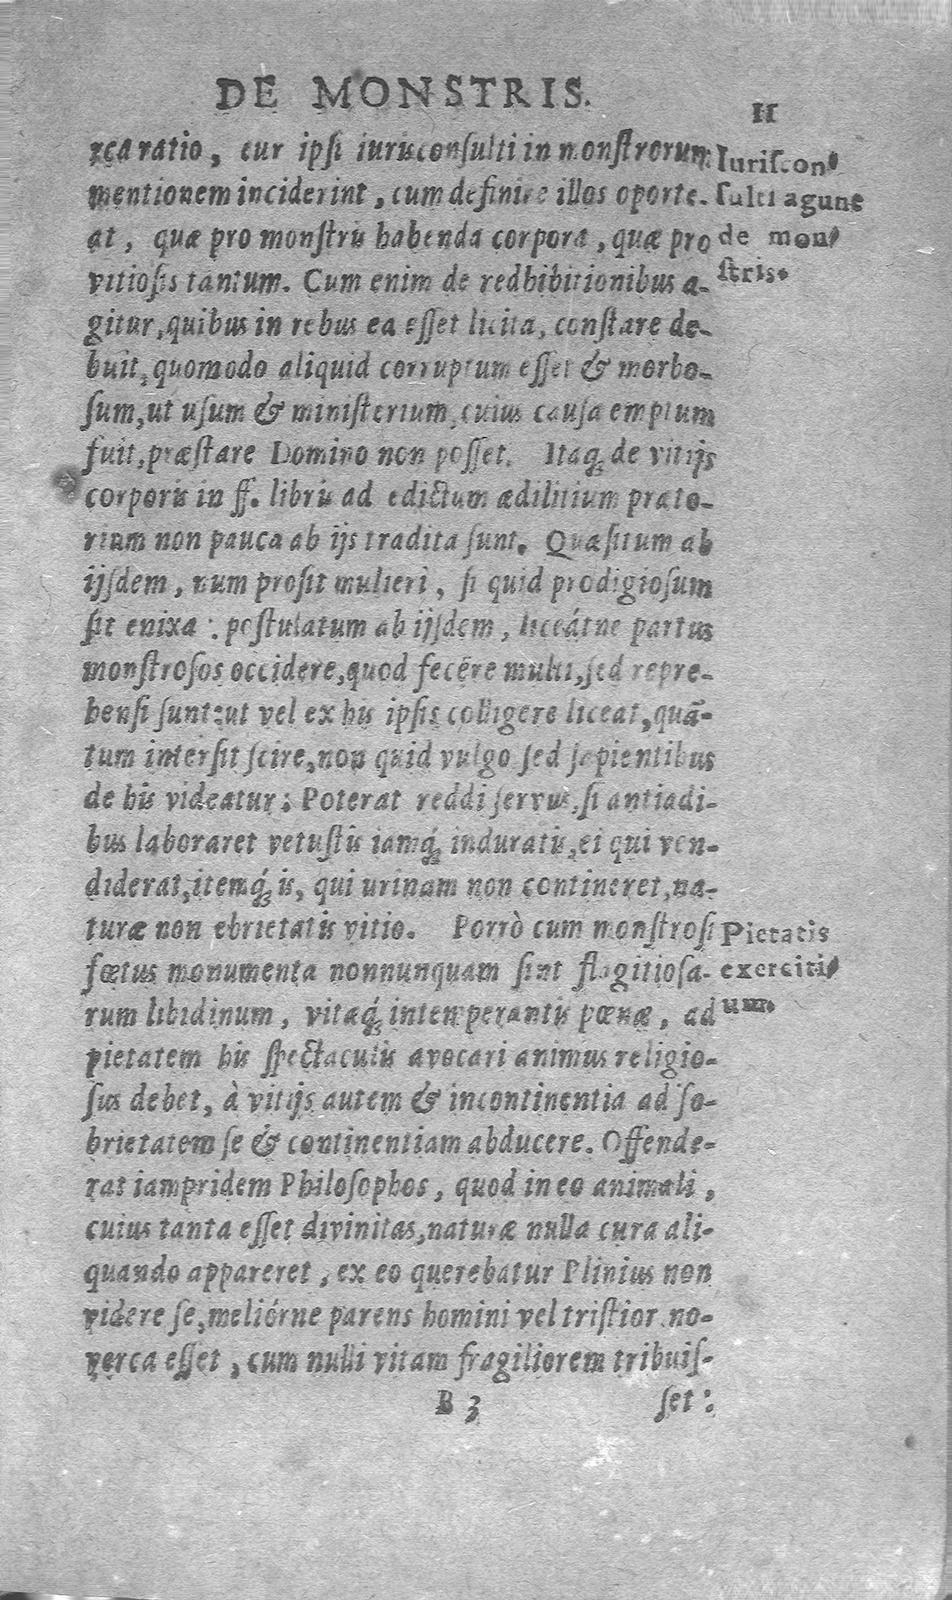 DE MONSTRIS.
II
rea ratio, cur ipsi iurisconsulti in monstrorum
mentionem inciderint, cum definire illos oporte-
at, quæ pro monstris habenda corpora, quæ pro
vitiosis tantum. Cum enim de redhibitionibus a-
gitur, quibus in rebus ea esset licita, constare de-
buit, quomodo aliquid corruptum esset & morbo-
sum, ut usum & ministerium, cuius causa emptum
fuit, præstare Domino non posset. Itaq; de vitijs
corporis in ff. libris ad edictum ædilitium præto-
rium non pauca ab ijs tradita sunt. Quæsitum ab
ijsdem, num prosit mulieri, si quid prodigiosum
sit enixa: postulatum ab ijsdem, liceátne partus
monstrosos occidere, quod fecêre multi, sed repre-
hensi sunt: ut vel ex his ipsis colligere liceat, quā-
tum intersit scire, non quid vulgo sed sapientibus
de his videatur: Poterat reddi servus, si antiadi-
bus laboraret vetustis iamq́; induratis, ei qui ven-
diderat, itemq́; is, qui urinam non contineret, na-
turæ non ebrietatis vitio. Porrò cum monstrosi
fœtus monumenta nonnunquam sint flagitiosa-
rum libidinum, vitæq́; intemperantis pœnæ, ad
pietatem his spectaculis avocari animus religio-
sus debet, à vitijs autem & incontinentia ad so-
brietatem se & continentiam abducere. Offende-
rat iampridem Philosophos, quod in eo animali,
cuius tanta esset divinitas, naturæ nulla cura ali-
quando appareret, ex eo querebatur Plinius non
videre se, meliórne parens homini vel tristior no-
verca esset, cum nulli vitam fragiliorem tribuis-
B 3
set:
Iuriscon-
sulti agunt
de mon-
stris.
Pietatis
exerciti-
um.